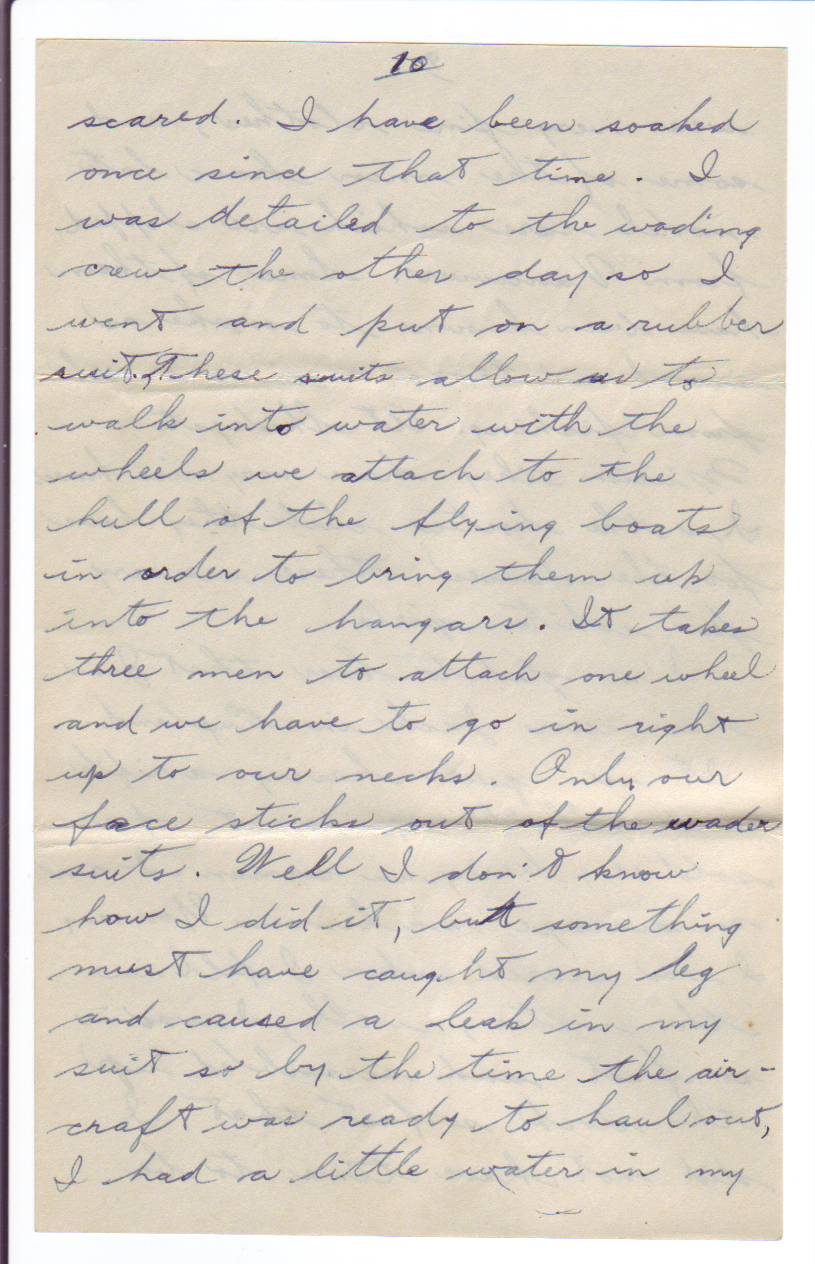 10
scared. I have been soaked
once since that time. I
was detailed to the wading
crew the other day so I
went and put on a rubber
suit. These suits allow us to
walk into water with the
wheels we attach to the
hull of the flying boats
in order to bring them up
into the hangars. It takes
three men to attach one wheel
and we have to go in right
up to our necks. Only our
face sticks out of the wader
suits. Well I don't know
how I did it, but something
must have caught my leg
and caused a leak in my
suit so by the time the air-
craft was ready to haul out,
I had a little water in my